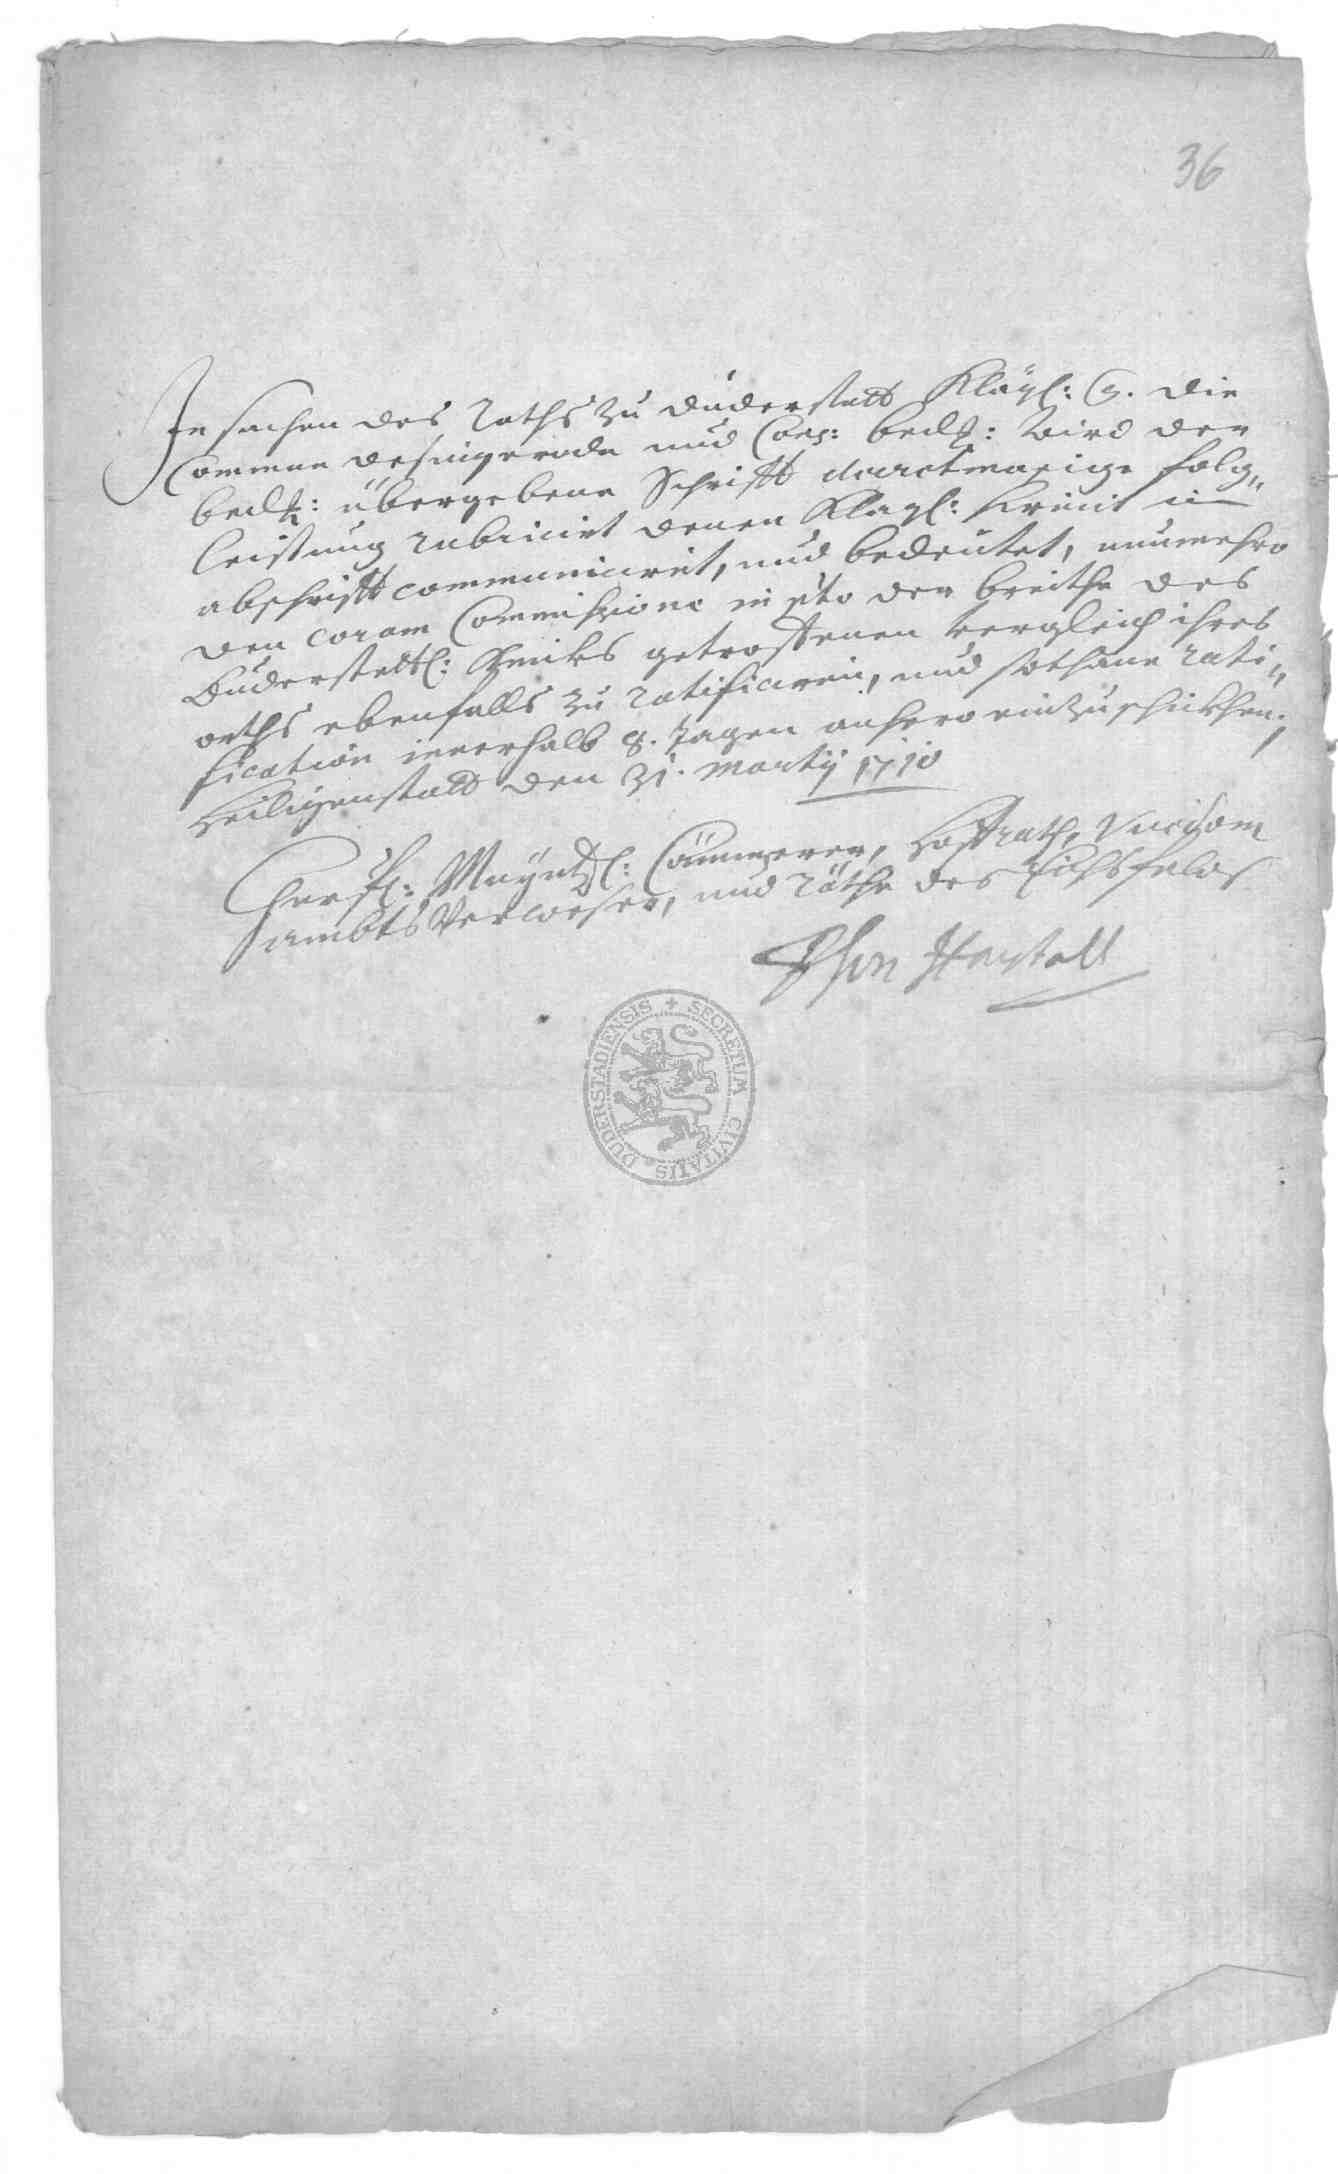 36
In sachen des Raths zu Duderstatt Kläg: C. die
Commun Desingerode und Cons: bekl: wird der
bekl: übergebene Schrifft decretmäsige folg„
leistung rubricirt denen Klag: hiemit in
abschrifft communiciret, und bedeutet, nunmehro
den coram Commissione in pto der breithe des
Duderstettl: Knicks getroffenen vergleich ihres
orths ebenfalls zu ratificiren, und sothane rati„
fication innerhalb 8. tagen anhero einzuschickhen.
Heiligenstatt den 31. Martij 1710
Churfl: Mayntzl: Cämmerer, Hoffrath, Vicedom
ambts Verweser, und Räthe des Eichsfelds
Hastall
SECRETUM CIVITATIS DUDERSTADIENSIS